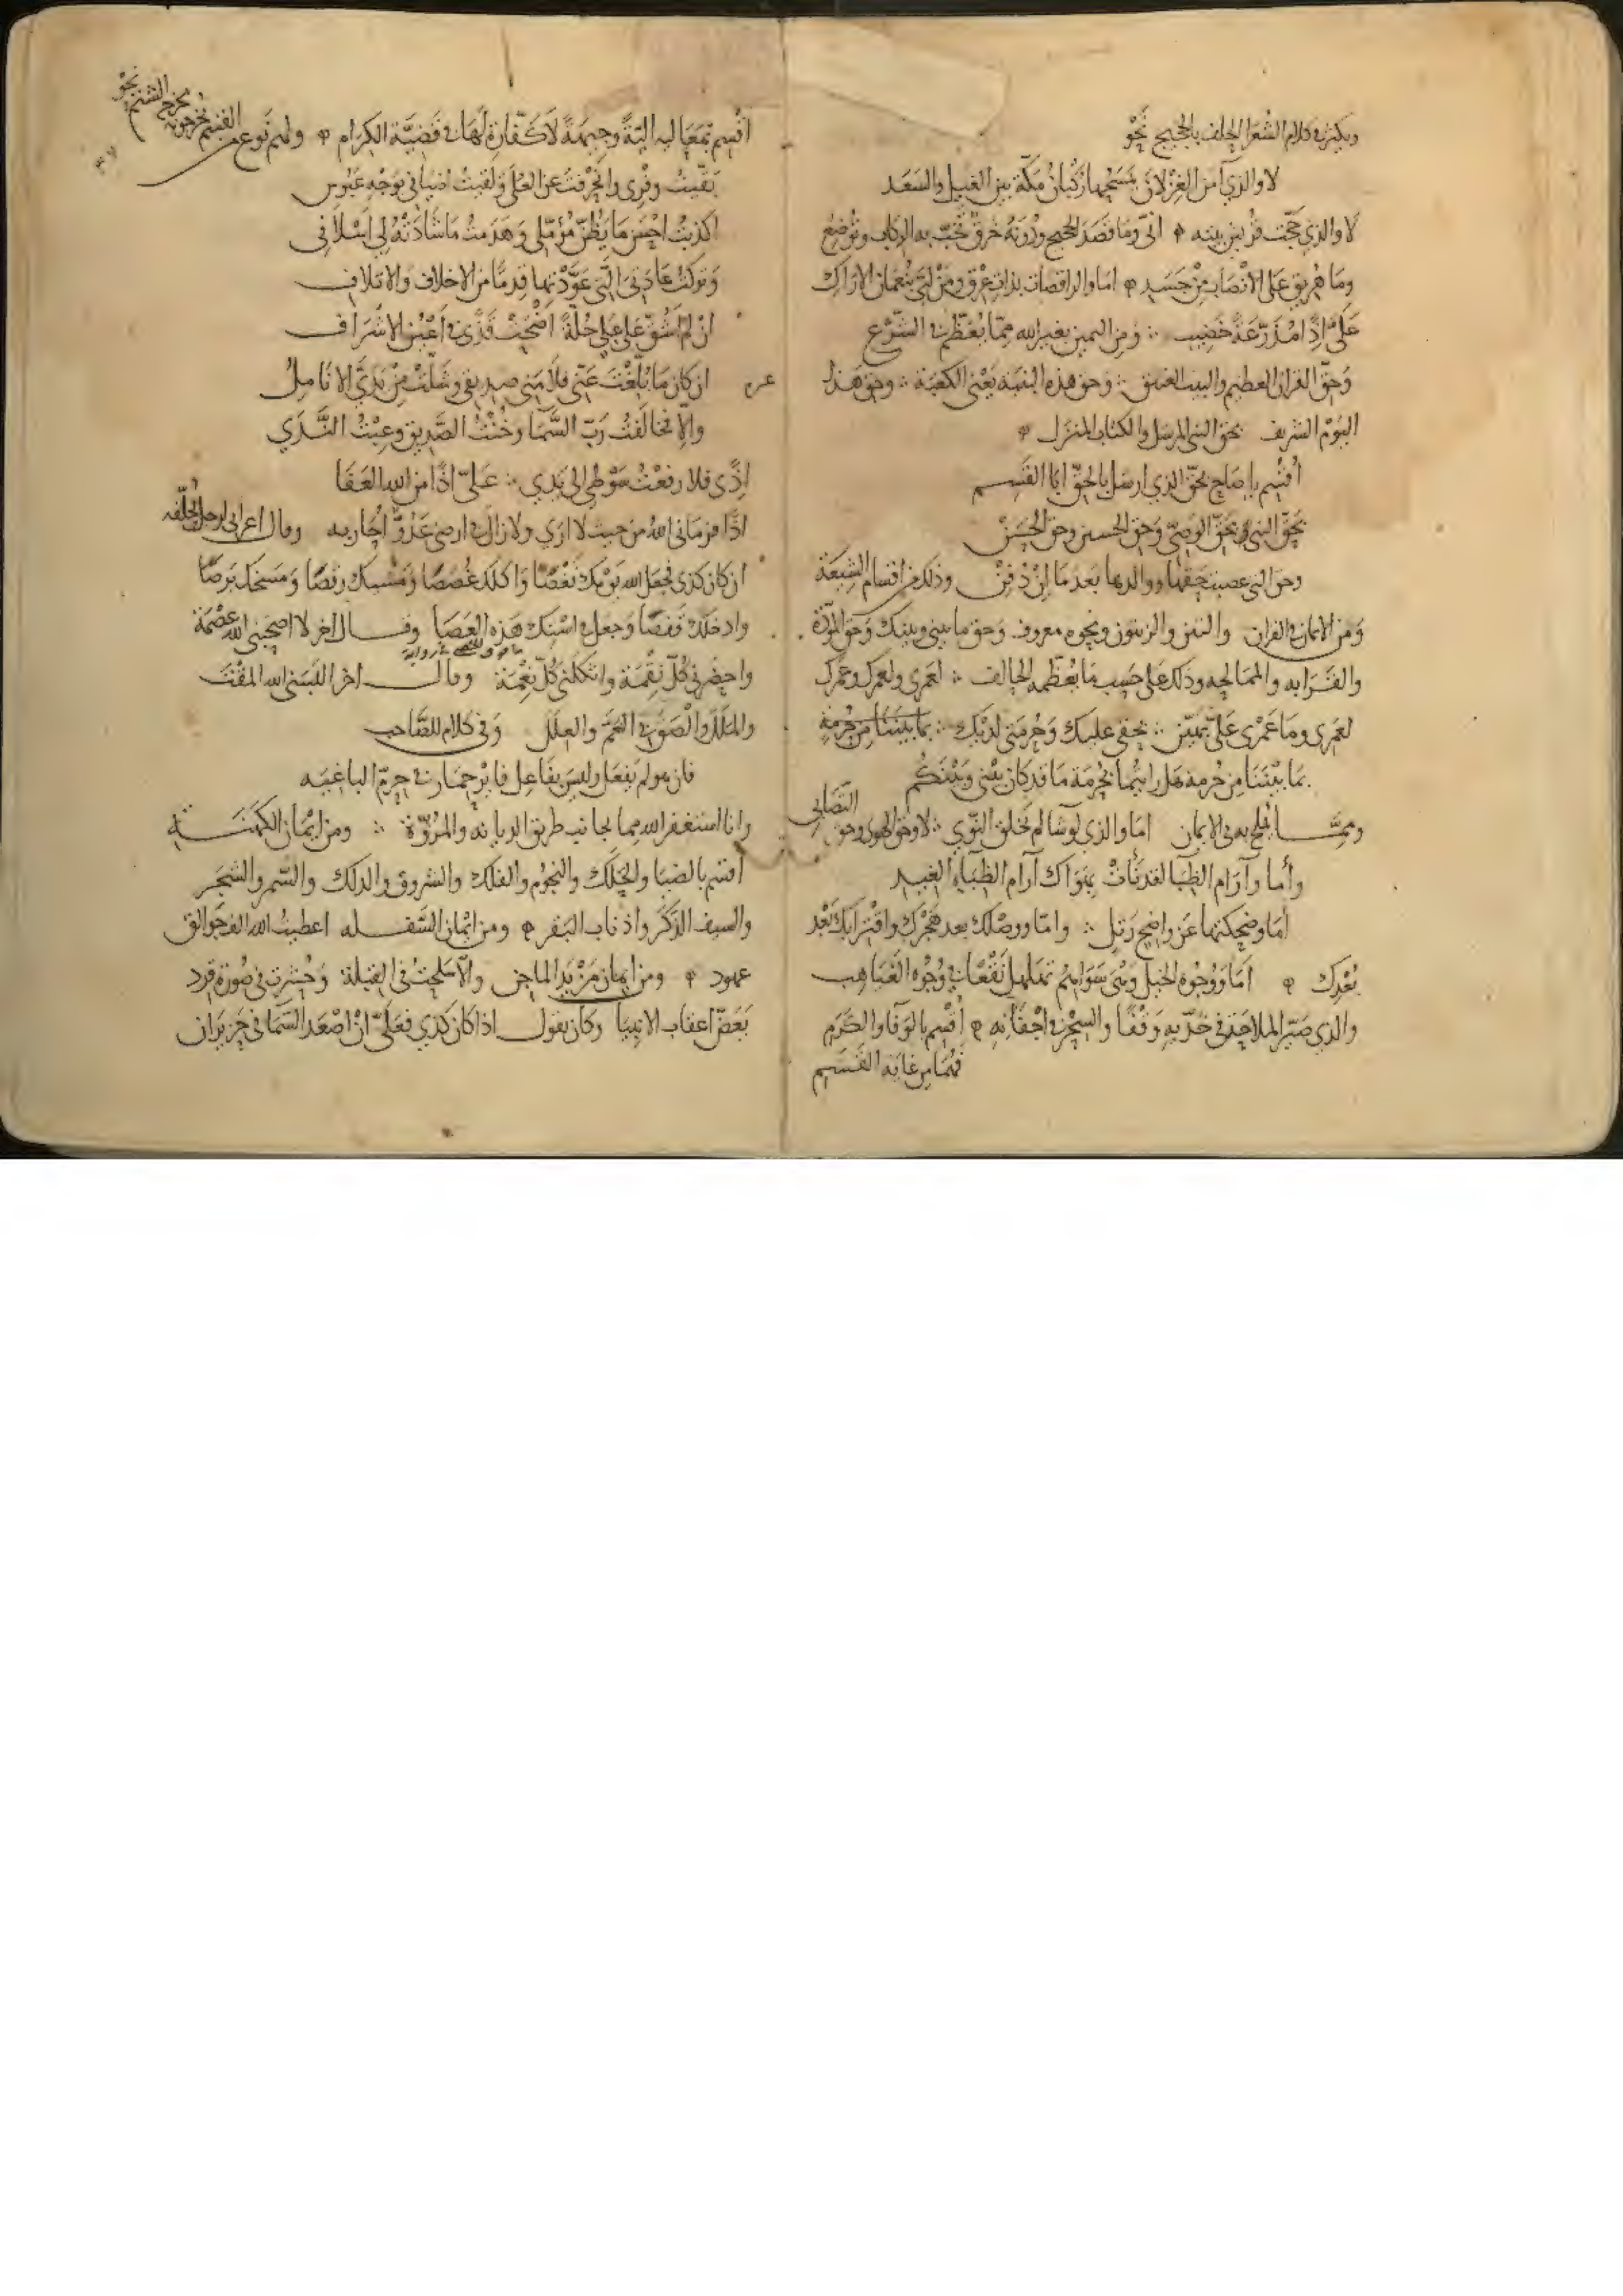 ويكثر في كلام الشعرا الحلف بالحجيج نحو
لا والذي آمن الغزلان تمسحها ركبان مكة بين الغيل والسعد
لا والذي حجت قريش بيته اني وما قصد الحجيج ودونه خرق تخب به الركاب وتوضع
وما هريق على الانصاب من جسد اما والراقصات بذات عرق ومن لبى بنعمان الاراك
على اذا خضيب ومن اليمين بغير الله مما يعظم في الشرع
وحق القران العظيم والبيت العتيق وحق هذه البنية يعني الكعبة وحق هذا
اليوم الشريف بحق النبي المرسل والكتاب المنزل
اقسم يا صاح بحق الذي ارسل بالحق ابا القسم
بحق النبي وبحق الوصي وحق الحسين وحق الحسن
وحق التي غصبت حقها ووالدها بعد ما ان دفن وذلك من اقسام الشيعة
ومن الايمان في القران والتين والزيتون ونحوه معروف وحق ما بيني وبينك وحق المودة
والقرابه والممالحه وذلك على حسب ما يعظمه الحالف لعمري ولعمرك وعمرك
لعمري وما عمري علي بهين بحقي عليك وحرمتي لديك بما بيننا من حرمة
بما بيننا من حرمة هل رايتما بحرمة ما قد كان بيني وبينكم
ومما يملح به في الايمان اما والذي لو شا لم يخلق النوى لا وحق الهوى وحق التصابي
وأما وآرام الظبا لقد نأت بهواك آرام الظباء الغيد
أما وضحكتها عن واضح رتل واما ووصلك بعد هجرك واقترابك بعد
بعدك أما ووجوه الخيل وهي سواهم تهلهل نقعا في وجوه الغياهب
والذي صير الملاحة في خديه وقفا والسحر في اجفانه أقسم بالوفا والكرم
فهما من غاية القسم
اقسم بمعاليه الية وجيهة لا كفارة لها في قضية الكرام ولهم نوع من القسم يخرجونه مخرج الشتم نحو
بقيت وفري وانحرفت عن العلى ولقيت اضيافي بوجه عبوس
اكذبت احسن ما يظن مؤملي وهدمت ما شادته لي اسلافي
وتركت عاداتي التي عودتها قدما من الاخلاف والاتلاف
ان لم اشن على علي خلة اضحت قذى في اعين الاشراف
ان كان ما بلغت عني فلامني صديقي وشلت من يدي الانامل
والا فخالفت رب السما وخنت الصديق وعبت الندى
اذى فلا رفعت سوطي الي يدي علي اذا من الله العفا
اذا فرماني الله من حيث لا ارى ولا زال في ارضي عدو احاربه وقال اعرابي لرجل
ان كان كذى فجعل الله يومك نغصا واكلك غصصا ومشيك رقصا ومسخك برصا
وادخلك قفصا وجعل في استك هذه العصا وقال اخر لا اصحبني الله عصمة
واحضرني كل نقمة واثكلني كل نعمة وقال اخر البسني الله المقت
وفي كلام للصاحب
فان هو لم يفعل وليس بفاعل فاير حمار في حرم الباغيه
وانا استغفر الله مما يجانب طريق الديانه والمروة ومن ايمان الكهنة
اقسم بالضيا والحلك والنجوم والفلك والشروق والدلك والسمر والشجر
والسيف الذكر واذناب البقر ومن ايمان السفله اعطيت الله الف جوالق
عهود ومن ايمان مزيد الماجن والا سلحت في القبلة وحشرت في صورة قرد
بعض اعقاب الانبيا وكان يقول اذا كان كذي فعلي ان اصعد السما في حزيران